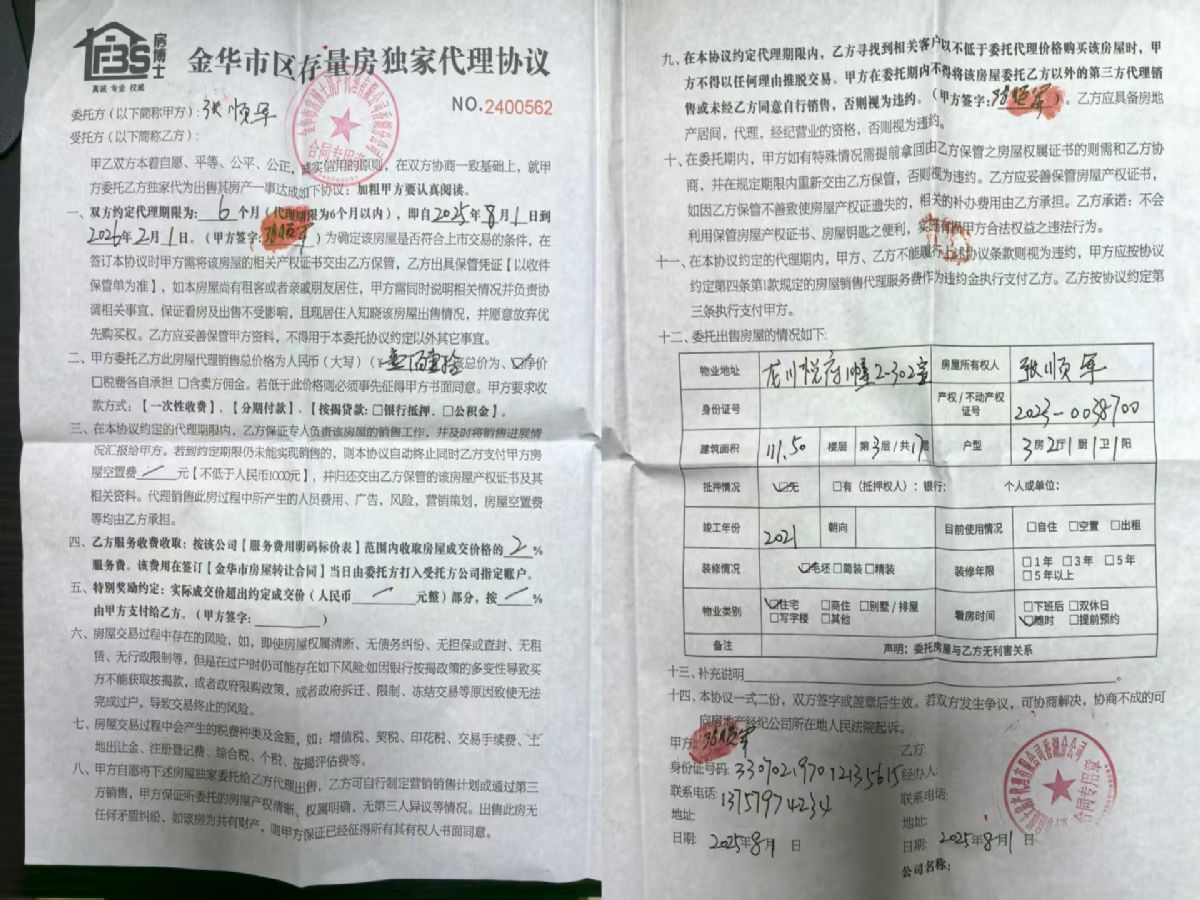 FBS
房博士
真诚 专业 权威
金华市区存量房独家代理协议
NO.2400562
委托方（以下简称甲方）：张顺军
受托方（以下简称乙方）：
合同专用章
甲乙双方本着自愿、平等、公平、公正、诚实信用的原则，在双方协商一致基础上，就甲
方委托乙方独家代为出售其房产一事达成如下协议：加粗甲方要认真阅读。
一、双方约定代理期限为：6个月（代理期限为6个月以内），即自2025年8月1日到
2026年2月1日。（甲方签字：张顺军）为确定该房屋是否符合上市交易的条件，在
签订本协议时甲方需将该房屋的相关产权证书交由乙方保管，乙方出具保管凭证【以收件
保管单为准】，如本房屋尚有租客或者亲戚朋友居住，甲方需同时说明相关情况并负责协
调相关事宜、保证看房及出售不受影响，且现居住人知晓该房屋出售情况，并愿意放弃优
先购买权。乙方应妥善保管甲方资料，不得用于本委托协议约定以外其它事宜。
二、甲方委托乙方此房屋代理销售总价格为人民币（大写）（ 该总价为、☑净价
☐税费各自承担 ☐含卖方佣金。若低于此价格则必须事先征得甲方书面同意。甲方要求收
款方式：【一次性收费】、【分期付款】、【按揭贷款：☐银行抵押、☐公积金】。
三、在本协议约定的代理期限内，乙方保证专人负责该房屋的销售工作，并及时将销售进展情
况汇报给甲方。若到约定期限仍未能实现销售的，则本协议自动终止同时乙方支付甲方房
屋空置费 / 元【不低于人民币1000元】，并归还交由乙方保管的该房屋产权证书及其
相关资料。代理销售此房过程中所产生的人员费用、广告，风险，营销策划，房屋空置费
等均由乙方承担。
四、乙方服务收费收取：按该公司【服务费用明码标价表】范围内收取房屋成交价格的 2 %
服务费。该费用在签订【金华市房屋转让合同】当日由委托方打入受托方公司指定账户。
五、特别奖励约定：实际成交价超出约定成交价（人民币 / 元整）部分，按 / %
由甲方支付给乙方。（甲方签字：）
六、房屋交易过程中存在的风险，如，即使房屋权属清晰、无债务纠纷、无担保或查封、无租
赁、无行政限制等，但是在过户时仍可能存在如下风险：如因银行按揭政策的多变性导致买
方不能获取按揭款，或者政府限购政策，或者政府拆迁、限制、冻结交易等原因致使无法
完成过户，导致交易终止的风险。
七、房屋交易过程中会产生的税费种类及金额，如：增值税、契税、印花税、交易手续费、土
地出让金、注册登记费、综合税、个税、按揭评估费等。
八、甲方自愿将下述房屋独家委托给乙方代理出售，乙方可自行制定营销销售计划或通过第三
方销售，甲方保证所委托的房屋产权清晰、权属明确，无第三人异议等情况。出售此房无
任何矛盾纠纷，如该房为共有财产，则甲方保证已经征得所有其有权人书面同意。
九、在本协议约定代理期限内，乙方寻找到相关客户以不低于委托代理价格购买该房屋时，甲
方不得以任何理由推脱交易。甲方在委托期内不得将该房屋委托乙方以外的第三方代理销
售或未经乙方同意自行销售，否则视为违约。（甲方签字：张顺军）。乙方应具备房地
产居间，代理，经纪营业的资格，否则视为违约。
十、在委托期内，甲方如有特殊情况需提前拿回由乙方保管之房屋权属证书的则需和乙方协
商，并在规定期限内重新交由乙方保管，否则视为违约。乙方应妥善保管房屋产权证书，
如因乙方保管不善致使房屋产权证遗失的，相关的补办费用由乙方承担。乙方承诺：不会
利用保管房屋产权证书、房屋钥匙之便利，实施有损甲方合法权益之违法行为。
十一、在本协议约定的代理期内，甲方、乙方不能履行上述协议条款则视为违约，甲方应按协议
约定第四条第1款规定的房屋销售代理服务费作为违约金执行支付乙方。乙方按协议约定第
三条执行支付甲方。
十二、委托出售房屋的情况如下:
物业地址 龙川悦府1幢2-302室 房屋所有权人 张顺军
身份证号 产权/不动产权证号 2023-0038700
建筑面积 111.50 楼层 第3层/共17层 户型 3房2厅1厨1卫1阳
抵押情况 ☑无 ☐有（抵押权人）：银行： 个人或单位：
竣工年份 2021 朝向 目前使用情况 ☐自住 ☐空置 ☐出租
装修情况 ☑毛坯 ☐简装 ☐精装 装修年限 ☐1年 ☐3年 ☐5年 ☐5年以上
物业类别 ☑住宅 ☐商住 ☐别墅/排屋 ☐写字楼 ☐其他 看房时间 ☐下班后 ☐双休日 ☑随时 ☐提前预约
备注 声明：委托房屋与乙方无利害关系
十三、补充说明
十四、本协议一式二份，双方签字或盖章后生效。若双方发生争议，可协商解决，协商不成的可
向房地产经纪公司所在地人民法院起诉。
甲方：张顺军 乙方：
身份证号码：330702197012135615 经办人：
联系电话：13757974234 联系电话：
地址： 地址：
日期：2025年8月1日 日期：2025年8月1日
公司名称：
合同专用章